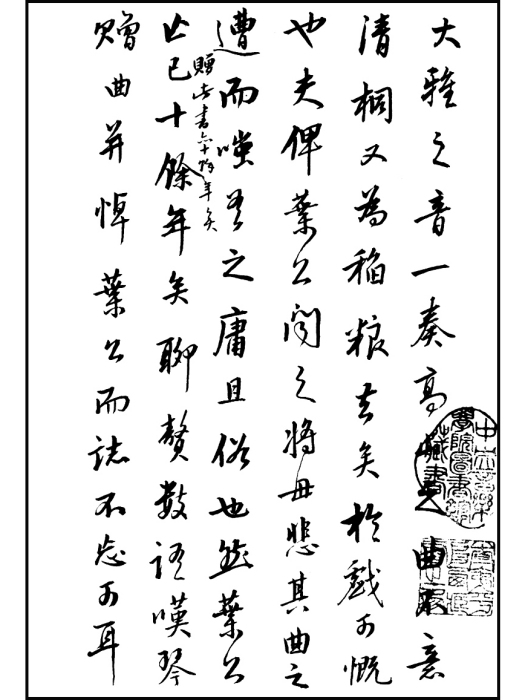 大雅之音一奏高之曲意
清桐又為稻粮去矣於戲可慨
也夫俾葉公聞之將毋悲其曲之
遭而嗤吾之庸且俗也然葉公
亡已十餘年矣聊贅數語嘆琴
贈此書六十餘年矣
贈曲并悼葉公而誌不忘可耳
中央音樂
學院圖書館
藏書